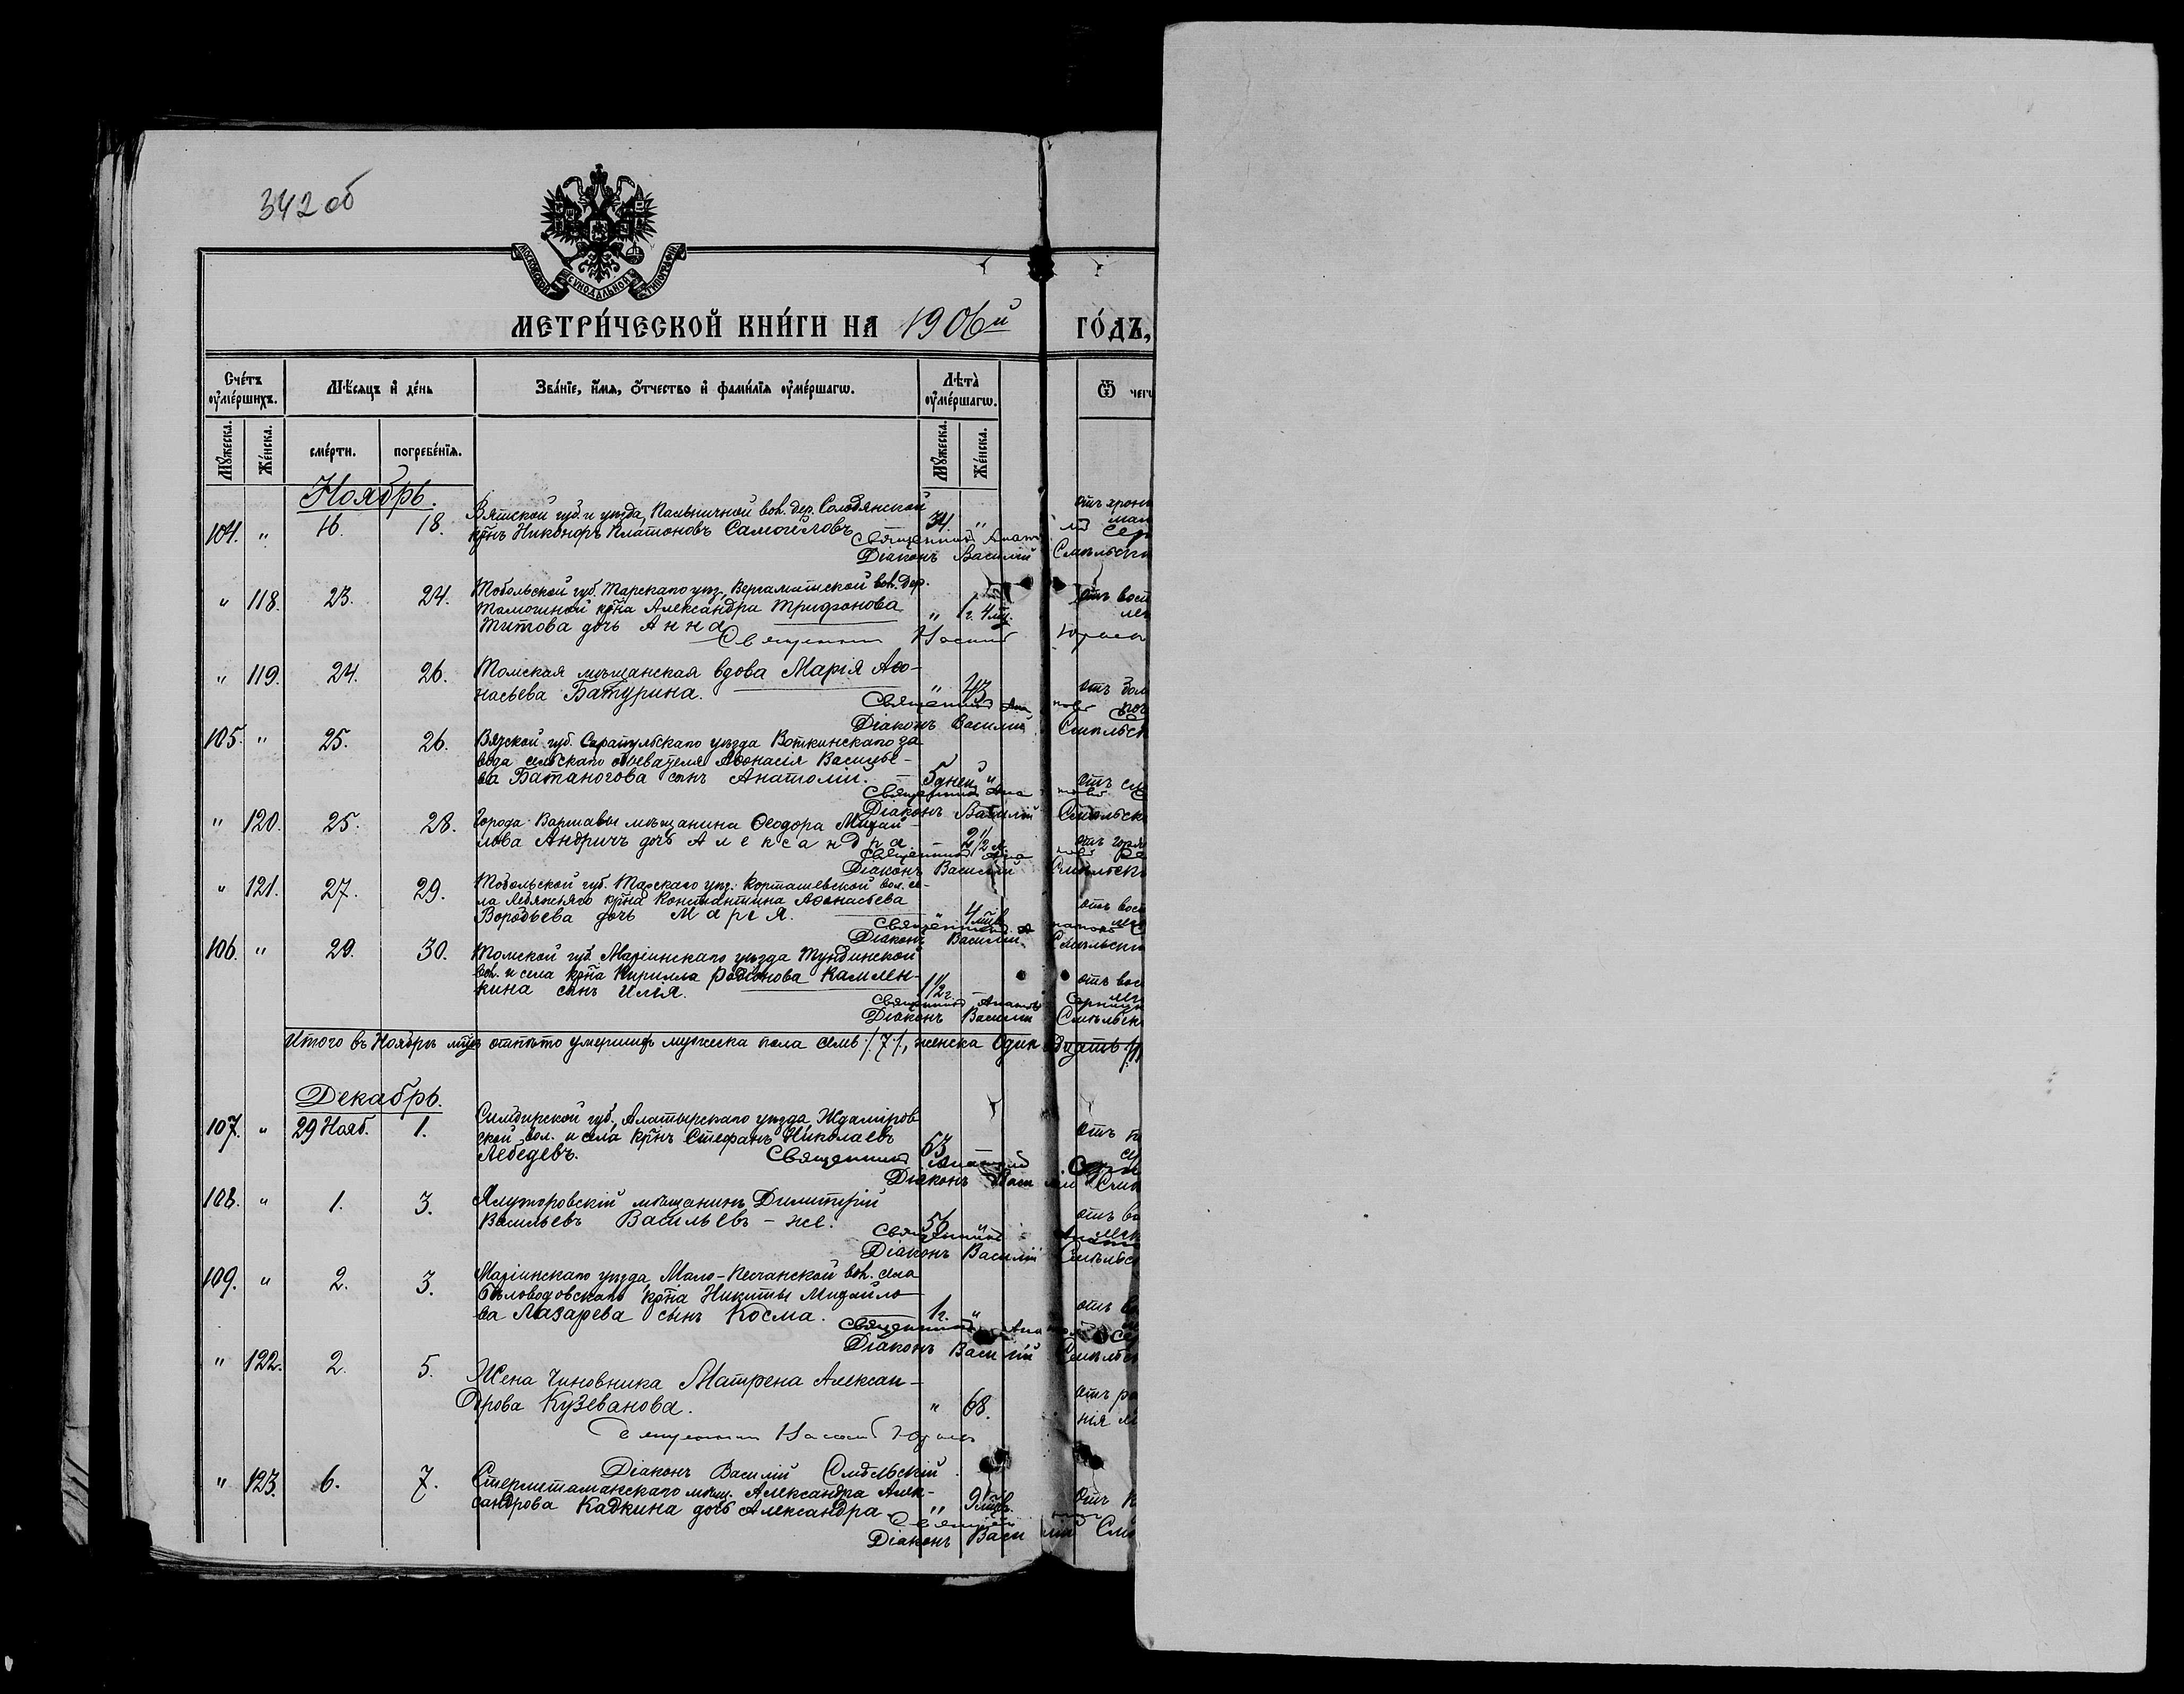 342 об
МОСКОВСКОЙ СѴНОДАЛЬНОЙ ТИПОГРАФІИ
МЕТРИ́ЧЕСКОЙ КНИ́ГИ НА 1906й ГО́ДЪ,
Сче́тъ ᲂу҆ме́ршихъ.
Мѣ́сяцъ и҆ де́нь
Зва́нїе, и҆́мя, ѻ҆́тчество и҆ фами́лїя ᲂу҆ме́ршагѡ.
Лѣ́та ᲂу҆ме́ршагѡ.
Ѿ чегѡ
Мꙋ́жеска.
Же́нска.
сме́рти.
погребе́нїя.
Мꙋ́жеска.
Же́нска.
Ноябрь.
104. " 16. 18. Вятской губ. и уѣзда, Пасѣничной вол. дер. Солодянской
крнъ Никоноръ Платоновъ Самойловъ 34. "
Священникъ
Діаконъ Василій Смѣльскі
" 118. 23. 24. Тобольской губ. Тарскаго уѣз., Бергаматской вол. дер.
крна Александра Трифонова " 1г. 4 мц. отъ восп
Титова дочь Анна
Священникъ
" 119. 24. 26. Томская мѣщанская вдова Марія Аѳа-
насьева Батурина. " 43
Священникъ
Діаконъ Василій Смѣльск
105. " 25. 26. Вятской губ. Сарапульскаго уѣзда Воткинскаго за
вода сельскаго обывателя Аѳонасія Василье-
ва Батаногова сынъ Анатолій. 5 дней "
Священникъ
Діаконъ Василій Смѣльск
" 120. 25. 28. Города Варшавы мѣщанина Ѳеодора Михай-
лова Андричъ дочь Александра. – 2 1/2 м.
Священникъ
Діаконъ Василій Смѣльск
" 121. 27. 29. Тобольской губ. Тарскаго уѣз. Корташевской вол. се-
ла крна Константина Аѳонасьева
Воробьева дочь Марія. " 4 мцв
Священникъ
Діаконъ Василій Смѣльскі
106. " 29. 30. Томской губ. Маріинскаго уѣзда Тундинской
вол. и села крна Кирилла Родіонова Камлен-
кина сынъ Илія. 1/2 г –
Священникъ
Діаконъ Василій Смѣльск
Итого въ Ноябрѣ мцѣ отпѣто умершихъ мужеска пола семь /7/, женска одиннадцать /11
Декабрь.
107. " 29 Нояб. 1. Симбирской губ., Алатырскаго уѣзда Ждаміров
ской вол. и села крнъ Стефанъ Николаевъ
Лебедевъ. 63
Священникъ Анатолій
Діаконъ
108. " 1. 3. Ялуторовскій мѣщанинъ Димитрій
Васильевъ Васильевъ – же. 56 "
Священникъ
Діаконъ Василій Смѣльс
109. " 2. 3. Маріинскаго уѣзда, Мало-Песчанской вол. села
Бѣловодовскаго крна Никиты Михайло-
ва Лазарева сынъ Косма. 1 г. "
Священникъ
Діаконъ Василій Смѣльс
" 122. 2. 5. Жена Чиновника Матрена Алексан-
дрова Кузеванова. " 68.
Священникъ
Діаконъ Василій Смѣльскій
" 123. 6. 7. Стерлитаманскаго мѣщ. Александра Алек-
сандрова Кадкина дочь Александра " 9 мцв.
Діаконъ Василій См